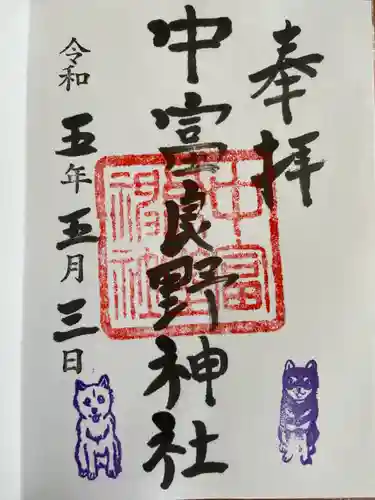 奉拝
中富良野神社
令和五年五月三日
中富良野神社